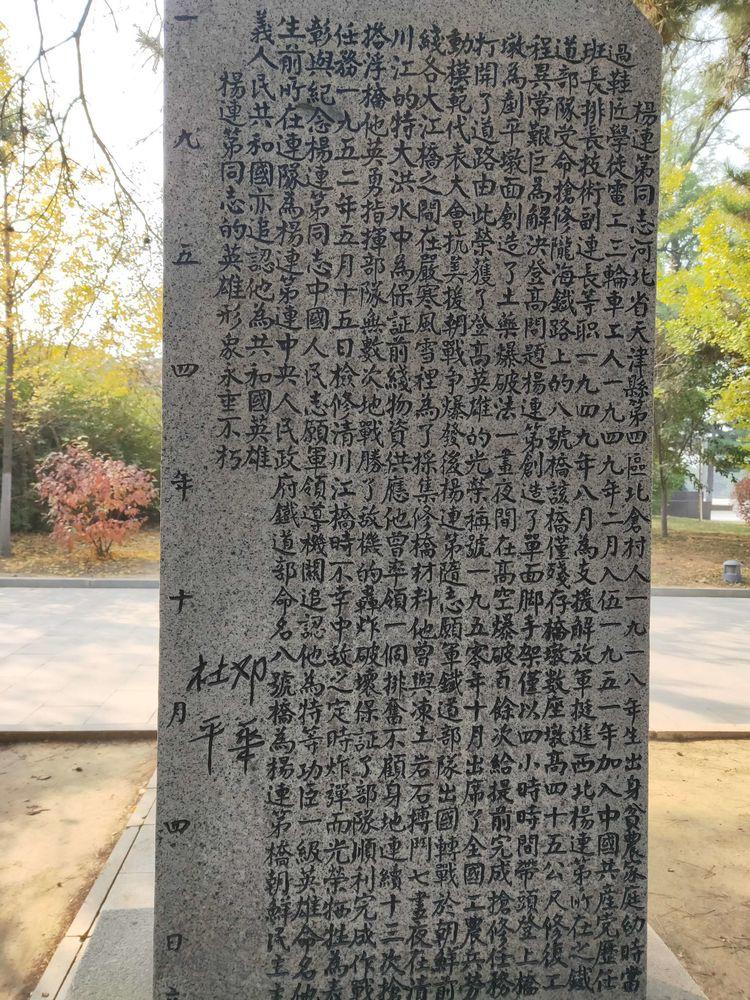 楊連第同志河北省天津縣第四區北倉村人一九一八年生出身貧農家庭幼時當
過鞋匠學徒電工三輪車工人一九四九年二月入伍一九五一年加入中國共産党歷任
班長排長技術副連長等职一九四九年八月為支援解放軍挺進西北楊連第所在之鐵
道部隊受命搶修隴海鐵路上的八號橋該橋僅殘存橋墩數座墩高四十五公尺修復工
程異常艱巨為解決登高問題楊連第創造了單面脚手架僅以四小時時間帶頭登上橋
墩為剷平墩面創造了土藥爆破法一晝夜間在高空爆破百餘次給提前完成搶修任務
打開了道路由此榮獲了登高英雄的光榮稱號一九五零年十月出席了全國工農兵劳
動模範代表大會抗美援朝戰争爆發後楊連第隨志願軍鐵道部隊出國轉戰於朝鮮前
綫各大江橋之間在嚴寒風雪裡為了採集修橋材料他曾與凍土岩石搏鬥七晝夜在清
川江的特大洪水中為保証前綫物資供應他曾率領一個排奮不顧身地連續十三次搶
搭浮橋他英勇指揮部隊無數次地戰勝了敌機的轟炸破壞保証了部隊順利完成作戰
任務一九五二年五月十五日檢修清川江橋時不幸中敌之定時炸彈而光荣牺牲為表
彰與紀念楊連第同志中國人民志願軍領導機關追認他為特等功臣一級英雄命名他
生前所在連隊為楊連第連中央人民政府鐵道部命名八號橋為楊連第橋朝鮮民主主
義人民共和國亦追認他為共和國英雄
楊連第同志的英雄形象永垂不朽
邓華
杜平
一九五四年十月四日立